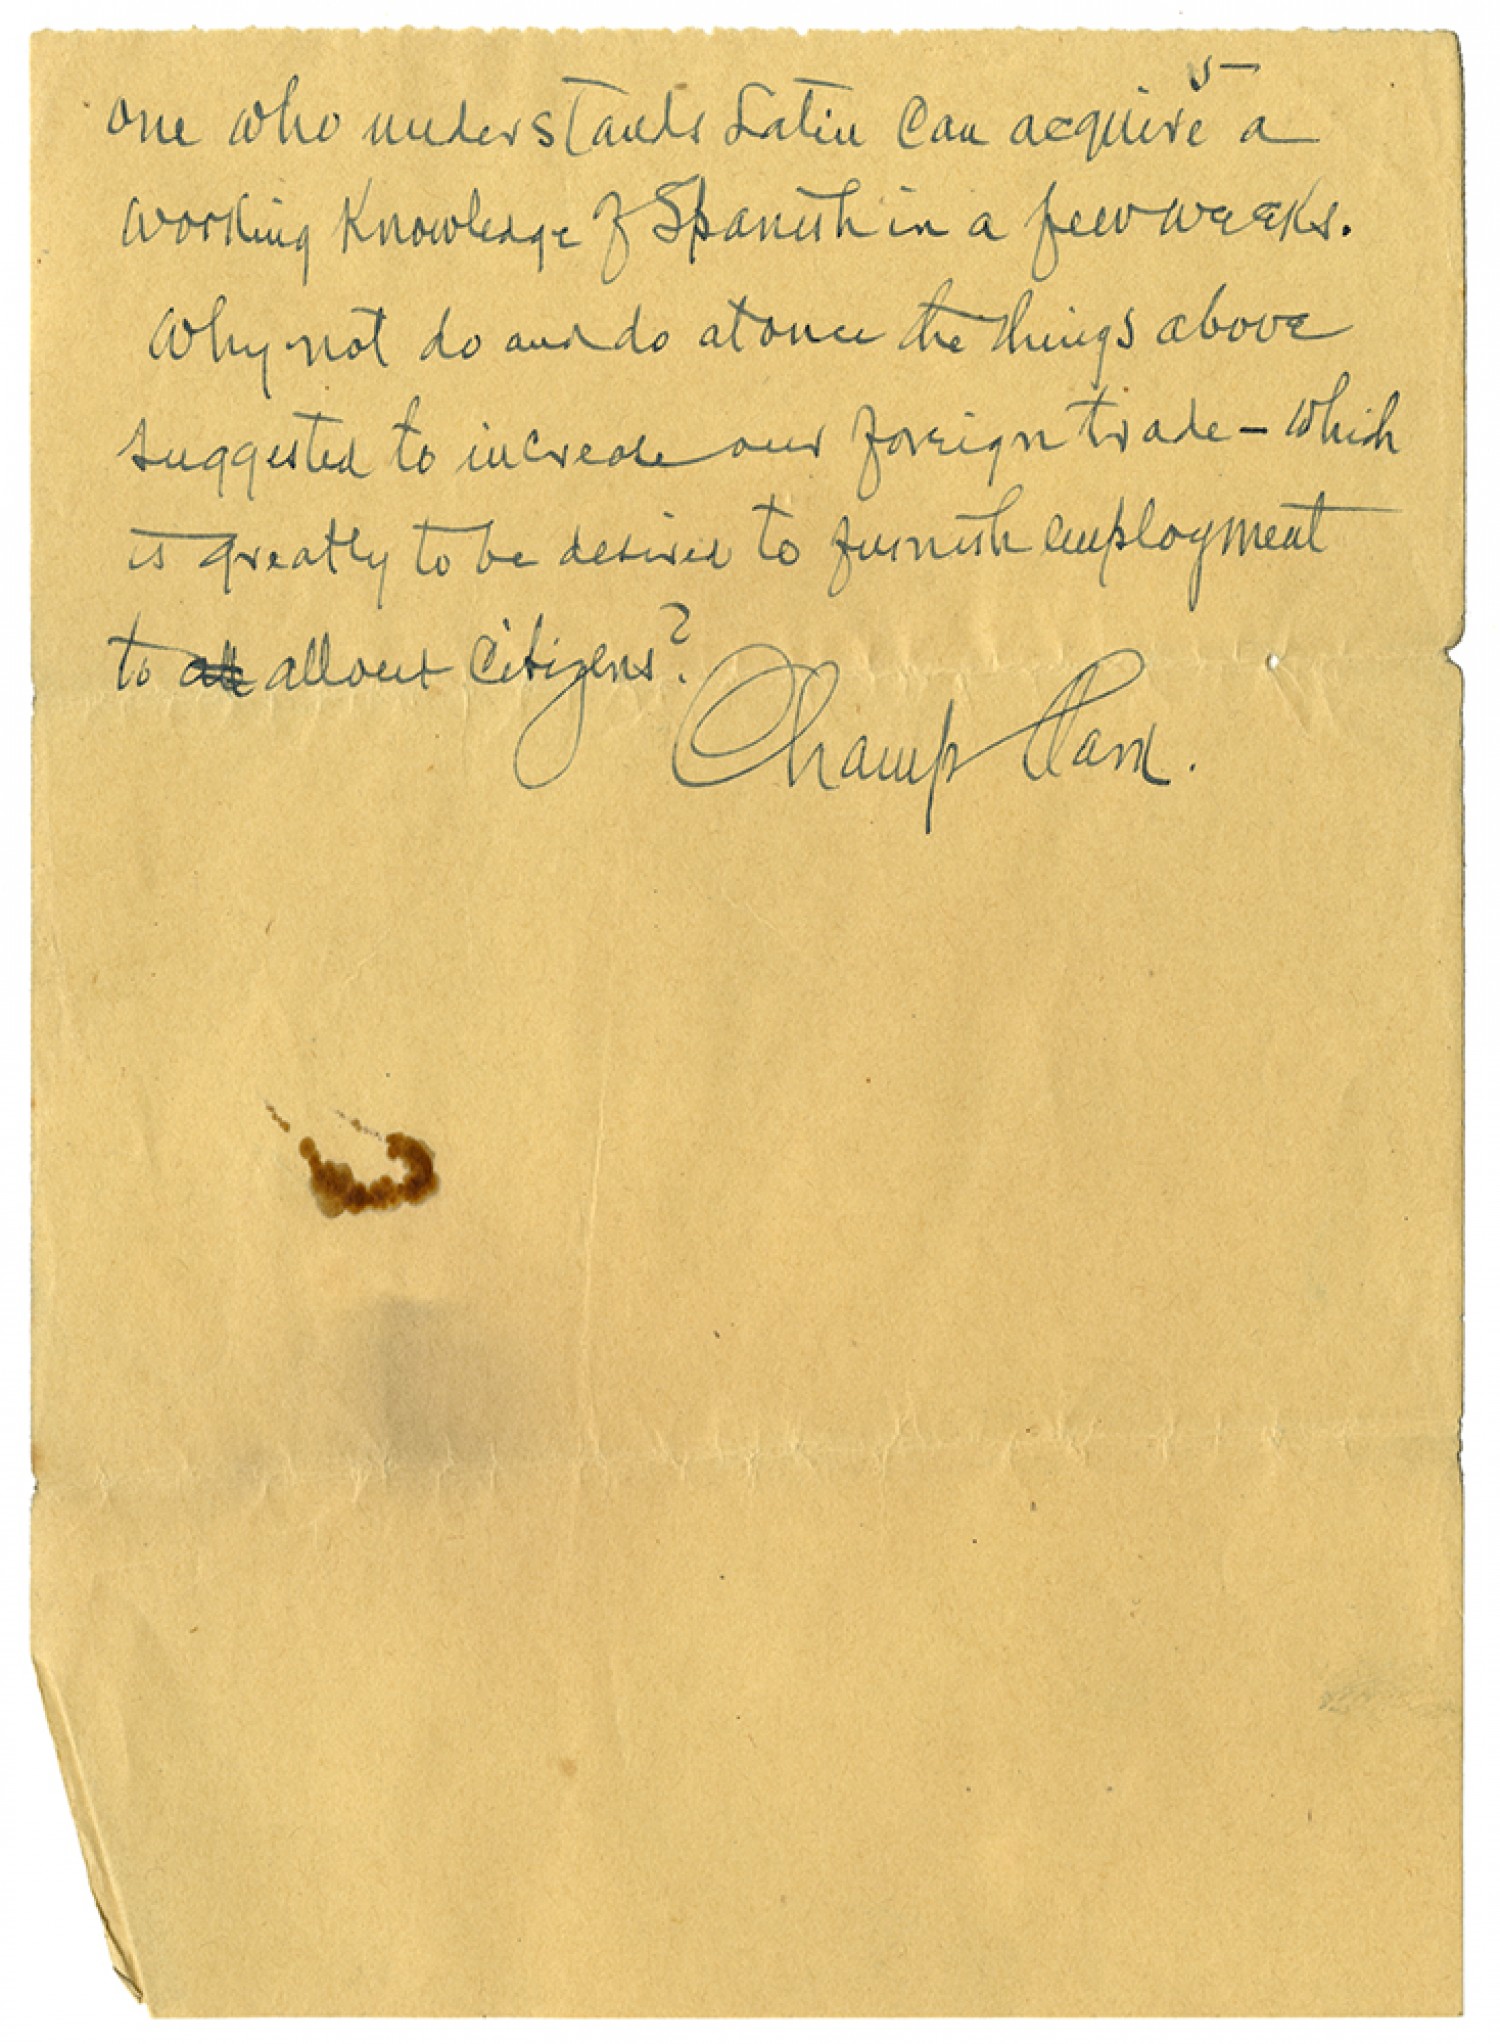 5
one who understands Latin can acquire a
working Knowledge of Spanish in a few weeks.
Why not do and do at once the things above
suggested to increase our foreign trade – which
is greatly to be desired to furnish employment
to all all our Citizens?
Champ Clark.